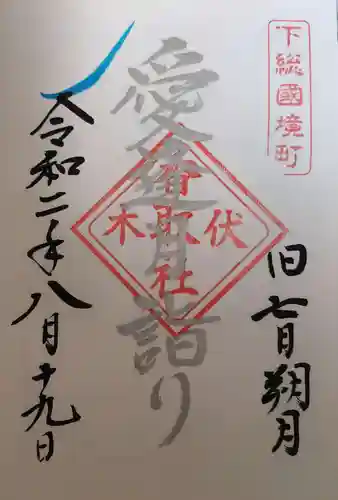 下総國境町
旧七月朔月
愛蓮月詣り
香取社
伏木
令和二年八月十九日